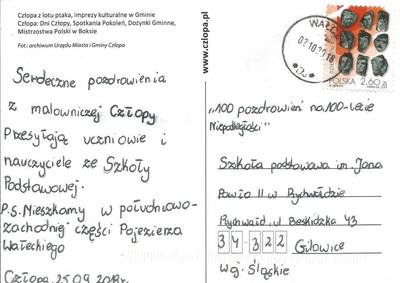 Człopa z lotu ptaka, imprezy kulturalne w Gminie
Człopa: Dni Człopy, Spotkania Pokoleń, Dożynki Gminne,
Mistrzostwa Polski w Boksie
Fot.: archiwum Urzędu Miasta i Gminy Człopa
Serdeczne pozdrowienia
z malowniczej Człopy
Przesyłają uczniowie i
nauczyciele ze Szkoły
Podstawowej.
P.S. Mieszkamy w południowo-
zachodniej części Pojezierza
Wałeckiego
Człopa, 25.09.2018r.
www.czlopa.pl
WAŁCZ
02.10.2018
POLSKA 2,60 zł
"100 pozdrowień na 100-lecie
Niepodległości"
Szkoła podstawowa im. Jana
Pawła II w Rychwałdzie
Rychwałd, ul. Beskidzka 43
34-322 Gilowice
woj. Śląskie